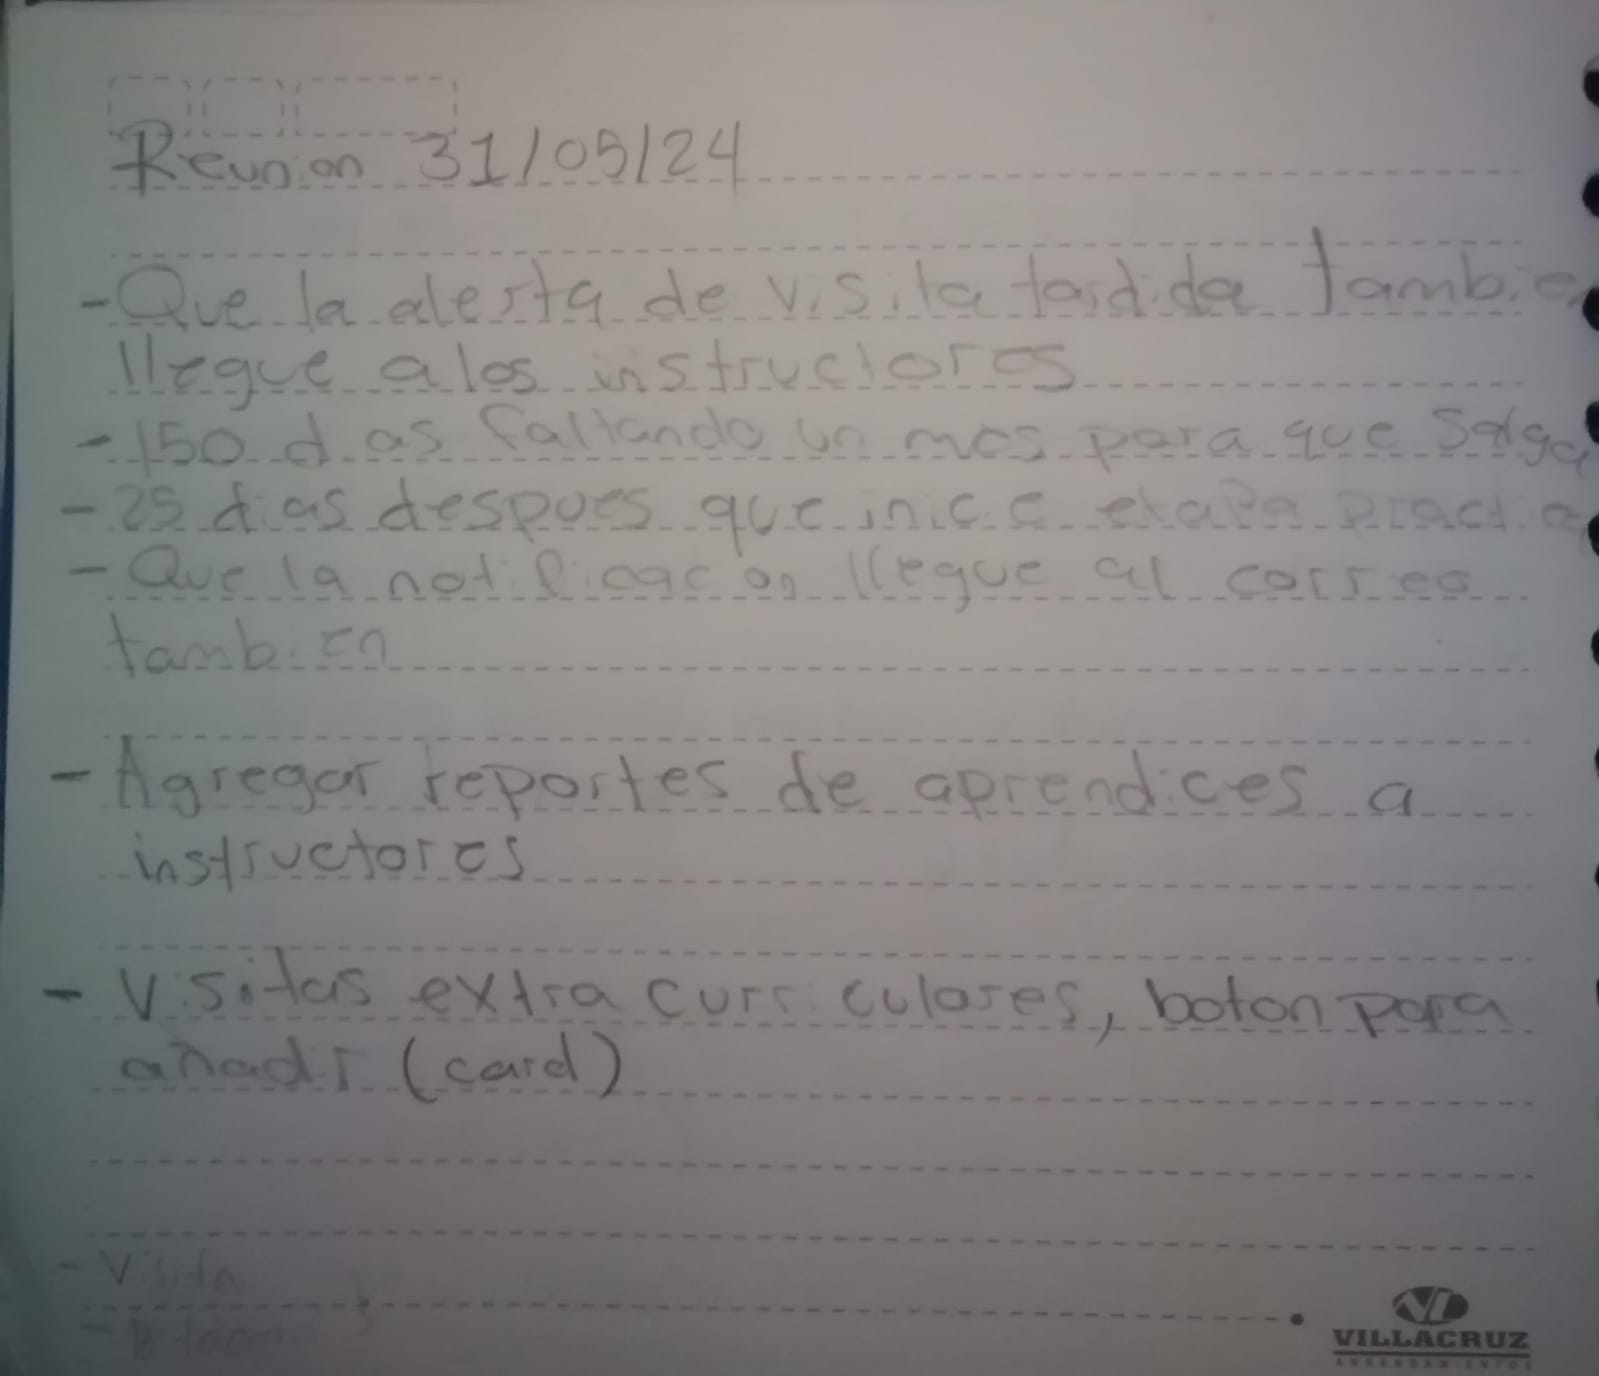 Reunion 31/05/24
- Que la alerta de visita tardida tambie
llegue a los instructores
- 150 dias faltando un mes para que salga
- 25 dias despues que inicie etapa practi
- Que la notificacion llegue al correo
tambien
- Agregar reportes de aprendices a
instructores
- Visitas extra curriculares, boton para
añadir (card)
- Visita
VILLACRUZ
ARRENDAMIENTOS